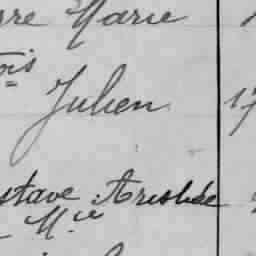 rre Marie
ois
Julien 17
stave Aristide
Mie